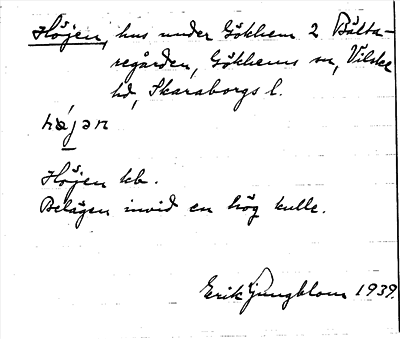 Höjen, hus under Gökhem 2 Bälta-
regården, Gökhems sn, Vilske
hd, Skaraborgs l.
hǿjən
Höjen kb.
Belägen invid en hög kulle.
Erik Ljungblom 1939.